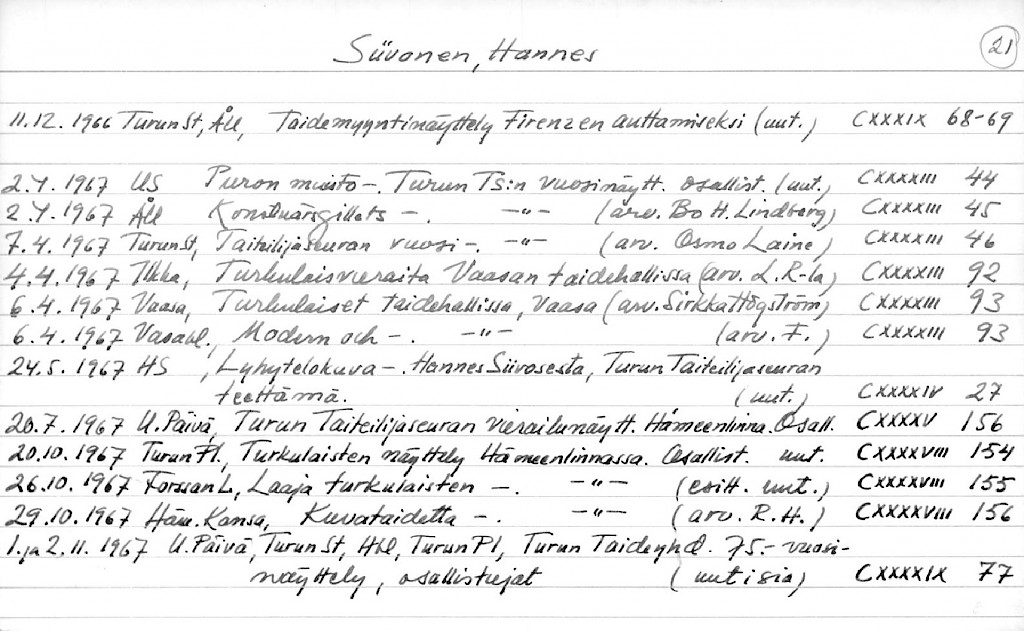 Siivonen, Hannes 21
11.12.1966 Turun St, ÅU, Taidemyyntinäyttely Firenzen auttamiseksi (uut.) CXXXIX 68-69
2.4.1967 US Puron muisto -. Turun TS:n vuosinäytt. osallist. (uut.) CXXXXIII 44
2.4.1967 ÅU Konstnärsgillets -. -"- (arv. Bo H. Lindberg) CXXXXIII 45
7.4.1967 Turun St, Taiteilijaseuran vuosi -. -"- (arv. Osmo Laine) CXXXXIII 46
4.4.1967 Ilkka, Turkulaisvieraita Vaasan taidehallissa (arv. L.R-la) CXXXXIII 92
6.4.1967 Vaasa, Turkulaiset taidehallissa, Vaasa (arv. Sirkka Högström) CXXXXIII 93
6.4.1967 Vasabl., Modern och -. -"- (arv. F.) CXXXXIII 93
24.5.1967 HS, Lyhytelokuva -. Hannes Siivosesta, Turun Taiteilijaseuran
teettämä. (uut.) CXXXXIV 27
20.7.1967 U.Päivä, Turun Taiteilijaseuran vierailunäytt. Hämeenlinna. Osall. CXXXXV 156
20.10.1967 Turun Pl., Turkulaisten näyttely Hämeenlinnassa. Osallist. uut. CXXXXVIII 154
26.10.1967 Forssan L, Laaja turkulaisten -. -"- (esitt. uut.) CXXXXVIII 155
29.10.1967 Häm. Kansa, Kuvataidetta -. -"- (arv. R.H.) CXXXXVIII 156
1.ja 2.11.1967 U.Päivä, Turun St, Hbl, Turun Pl, Turun Taideyhd. 75.- vuosi-
näyttely, osallistujat (uutisia) CXXXXIX 77